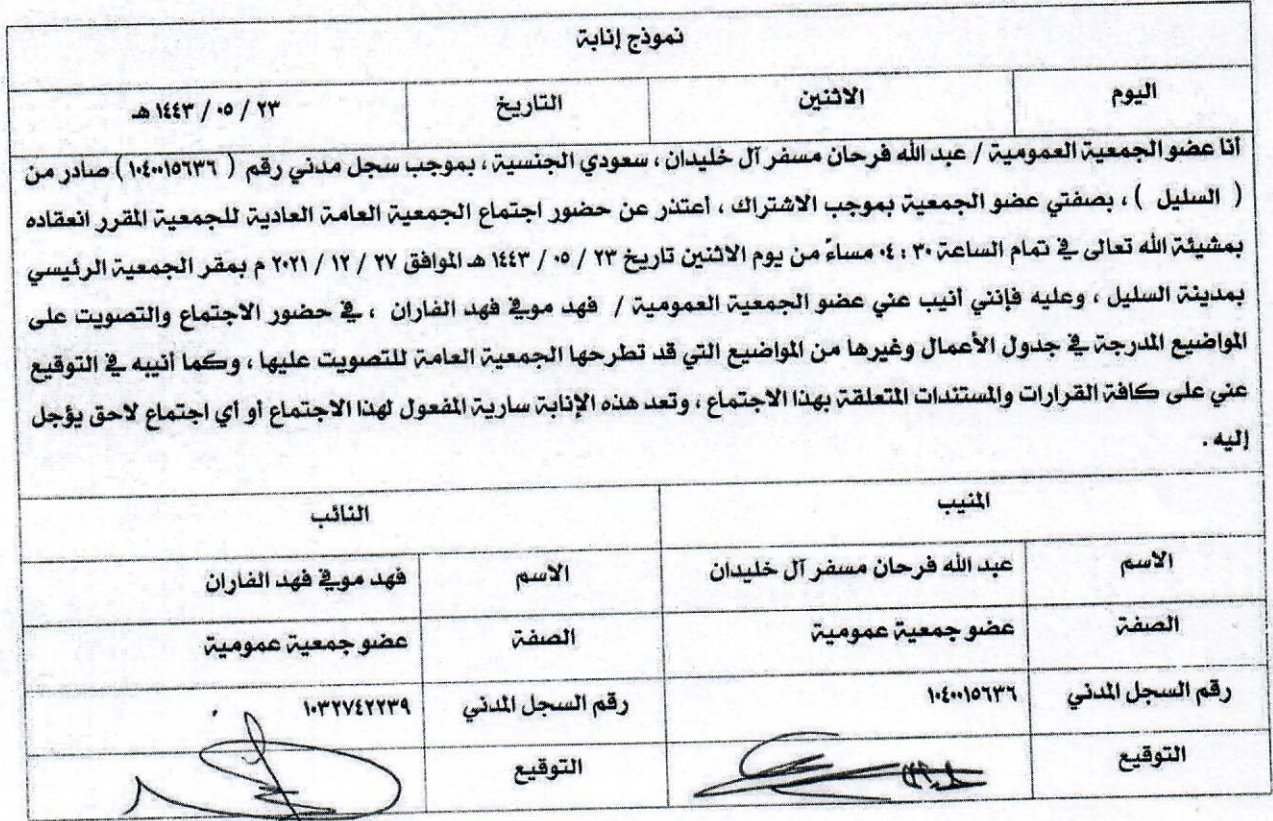 نموذج إنابة
اليوم الاثنين التاريخ ٢٣ / ٠٥ / ١٤٤٣ هـ
أنا عضو الجمعية العمومية / عبد الله فرحان مسفر آل خليدان ، سعودي الجنسية ، بموجب سجل مدني رقم ( ١٠٤٠٠١٥٦٣٦ ) صادر من
( السليل ) ، بصفتي عضو الجمعية بموجب الاشتراك ، أعتذر عن حضور اجتماع الجمعية العامة العادية للجمعية المقرر انعقاده
بمشيئة الله تعالى في تمام الساعة ٣٠ : ٠٤ مساءً من يوم الاثنين تاريخ ٢٣ / ٠٥ / ١٤٤٣ هـ الموافق ٢٧ / ١٢ / ٢٠٢١ م بمقر الجمعية الرئيسي
بمدينة السليل ، وعليه فإنني أنيب عني عضو الجمعية العمومية / فهد موفي فهد الفاران ، في حضور الاجتماع والتصويت على
المواضيع المدرجة في جدول الأعمال وغيرها من المواضيع التي قد تطرحها الجمعية العامة للتصويت عليها ، وكما أنيبه في التوقيع
عني على كافة القرارات والمستندات المتعلقة بهذا الاجتماع ، وتعد هذه الإنابة سارية المفعول لهذا الاجتماع أو أي اجتماع لاحق يؤجل
إليه .
المنيب النائب
الاسم عبد الله فرحان مسفر آل خليدان الاسم فهد موفي فهد الفاران
الصفة عضو جمعية عمومية الصفة عضو جمعية عمومية
رقم السجل المدني ١٠٤٠٠١٥٦٣٦ رقم السجل المدني ١٠٣٢٧٤٢٢٣٩
التوقيع التوقيع